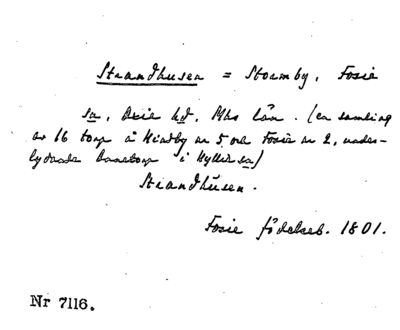 Strandhusen = Stormby, Fosie
sn, Oxie hd, Mhs län. (en samling
av 16 torp å Hindby nr 5 och Fosie nr 2, under-
lydande torp i Hyllie sn)
Strandhusen.
Fosie födelseb. 1801.
Nr 7116.